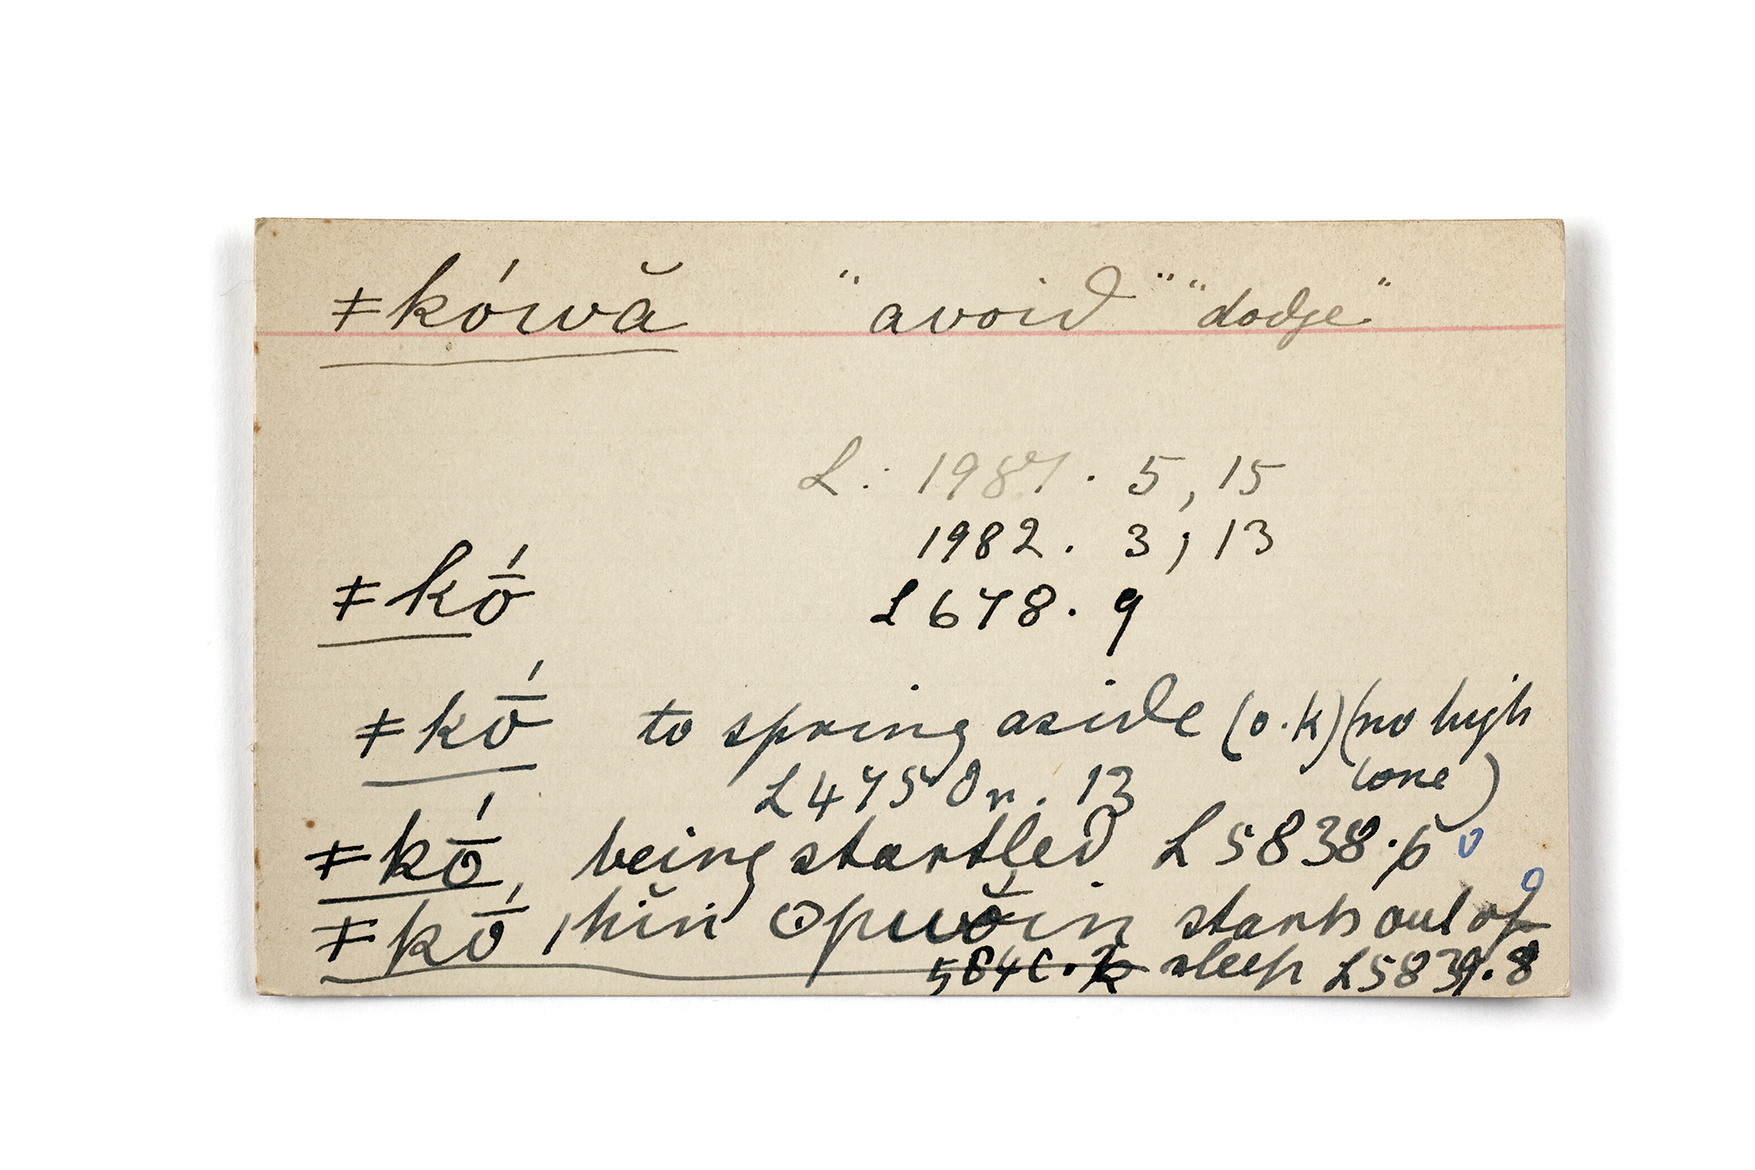 ǂkówă "avoid" "dodge"
L: 1981. 5, 15
1982. 3, 13
ǂkṓ L678. 9
ǂkṓ to spring aside (o.k) (no high
L475 13 tone)
ǂkṓ, being startled L5838.
ǂkṓ starts out of
sleep L5839.8